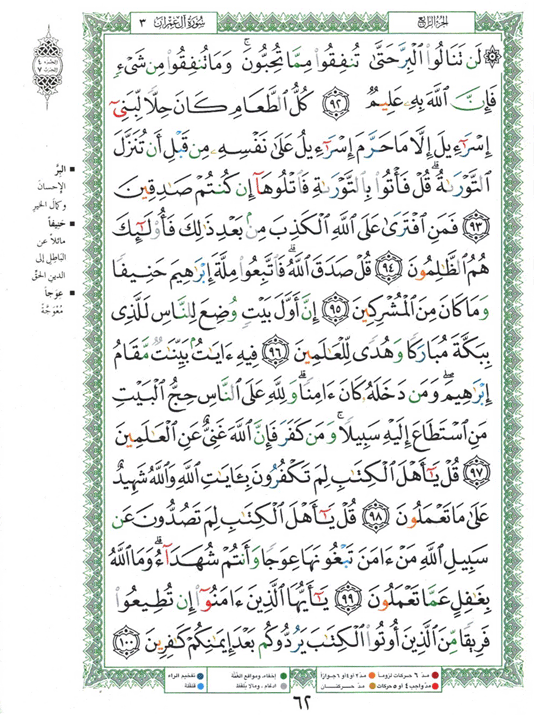 الجزء الرابع
سورة آل عمران ٣
لَن تَنَالُوا۟ ٱلْبِرَّ حَتَّىٰ تُنفِقُوا۟ مِمَّا تُحِبُّونَ ۚ وَمَا تُنفِقُوا۟ مِن شَىْءٍ
فَإِنَّ ٱللَّهَ بِهِۦ عَلِيمٌ ٩٢ كُلُّ ٱلطَّعَامِ كَانَ حِلًّا لِّبَنِىٓ
إِسْرَٰٓءِيلَ إِلَّا مَا حَرَّمَ إِسْرَٰٓءِيلُ عَلَىٰ نَفْسِهِۦ مِن قَبْلِ أَن تُنَزَّلَ
ٱلتَّوْرَىٰةُ ۗ قُلْ فَأْتُوا۟ بِٱلتَّوْرَىٰةِ فَٱتْلُوهَآ إِن كُنتُمْ صَٰدِقِينَ
٩٣ فَمَنِ ٱفْتَرَىٰ عَلَى ٱللَّهِ ٱلْكَذِبَ مِنۢ بَعْدِ ذَٰلِكَ فَأُو۟لَٰٓئِكَ
هُمُ ٱلظَّٰلِمُونَ ٩٤ قُلْ صَدَقَ ٱللَّهُ ۗ فَٱتَّبِعُوا۟ مِلَّةَ إِبْرَٰهِيمَ حَنِيفًا
وَمَا كَانَ مِنَ ٱلْمُشْرِكِينَ ٩٥ إِنَّ أَوَّلَ بَيْتٍ وُضِعَ لِلنَّاسِ لَلَّذِى
بِبَكَّةَ مُبَارَكًا وَهُدًى لِّلْعَٰلَمِينَ ٩٦ فِيهِ ءَايَٰتٌۢ بَيِّنَٰتٌ مَّقَامُ
إِبْرَٰهِيمَ ۖ وَمَن دَخَلَهُۥ كَانَ ءَامِنًا ۗ وَلِلَّهِ عَلَى ٱلنَّاسِ حِجُّ ٱلْبَيْتِ
مَنِ ٱسْتَطَاعَ إِلَيْهِ سَبِيلًا ۚ وَمَن كَفَرَ فَإِنَّ ٱللَّهَ غَنِىٌّ عَنِ ٱلْعَٰلَمِينَ
٩٧ قُلْ يَٰٓأَهْلَ ٱلْكِتَٰبِ لِمَ تَكْفُرُونَ بِـَٔايَٰتِ ٱللَّهِ وَٱللَّهُ شَهِيدٌ
عَلَىٰ مَا تَعْمَلُونَ ٩٨ قُلْ يَٰٓأَهْلَ ٱلْكِتَٰبِ لِمَ تَصُدُّونَ عَن
سَبِيلِ ٱللَّهِ مَنْ ءَامَنَ تَبْغُونَهَا عِوَجًا وَأَنتُمْ شُهَدَآءُ ۗ وَمَا ٱللَّهُ
بِغَٰفِلٍ عَمَّا تَعْمَلُونَ ٩٩ يَٰٓأَيُّهَا ٱلَّذِينَ ءَامَنُوٓا۟ إِن تُطِيعُوا۟
فَرِيقًا مِّنَ ٱلَّذِينَ أُوتُوا۟ ٱلْكِتَٰبَ يَرُدُّوكُم بَعْدَ إِيمَٰنِكُمْ كَٰفِرِينَ ١٠٠
البرّ
الإحسان
وكمال الخير
حنيفاً
مائلاً عن
الباطل إلى
الدين الحق
عوجاً
مُعْوَجَّةً
مدّ ٦ حركات لزوماً
مدّ ٢ أو ٤ أو ٦ جوازاً
إخفاء، ومواقع الغنّة
تفخيم الراء
مدّ واجب ٤ أو ٥ حركات
مدّ حركتان
إدغام، وما لا يلفظ
قلقلة
٦٢